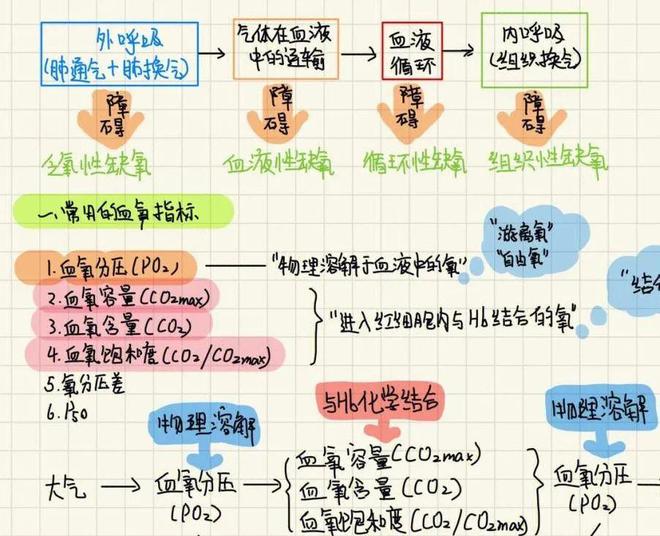 外呼吸
(肺通气+肺换气)
气体在血液
中的运输
血液
循环
内呼吸
(组织换气)
障
碍
障
碍
障
碍
障
碍
乏氧性缺氧
血液性缺氧
循环性缺氧
组织性缺氧
一、常用的血氧指标
1.血氧分压(PO₂)
"物理溶解于血液中的氧"
"游离氧"
"自由氧"
2.血氧容量(CO₂max)
3.血氧含量(CO₂)
4.血氧饱和度(CO₂/CO₂max)
"进入红细胞内与Hb结合的氧"
"结合
5.氧分压差
6.P50
物理溶解
与Hb化学结合
物理溶解
大气
血氧分压
(PO₂)
血氧容量(CO₂max)
血氧含量(CO₂)
血氧饱和度(CO₂/CO₂max)
血氧分压
(PO₂)